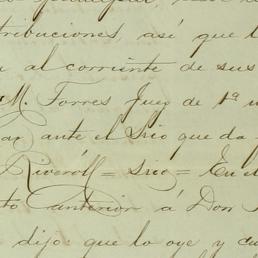 tribuciones, así que l
a al corriente de sus
M. Torres Juez de 1ª
ar ante el Srio que da
Riveroll = Srio = En el
to anterior á Don
dijo: que lo oye y cu